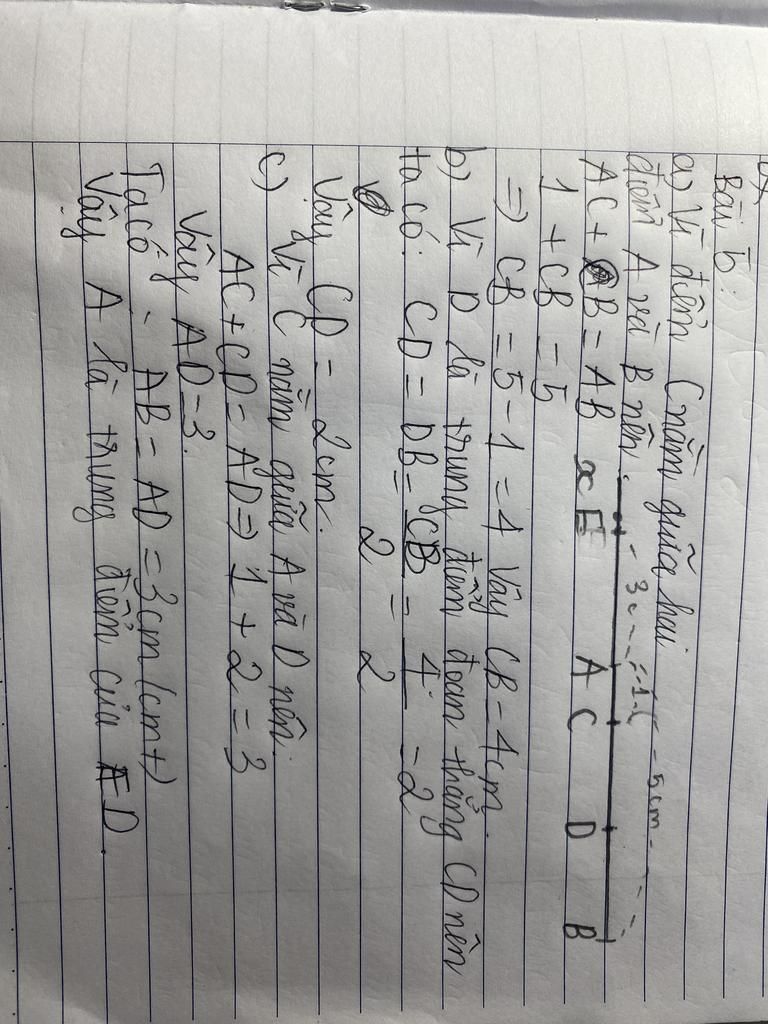 Bài 5:
a) Vì điểm C nằm giữa hai
điểm A và B nên:
3c
1c
5cm
x E A C D B
AC + CB = AB
1 + CB = 5
=) CB = 5 - 1 = 4 Vậy CB = 4cm.
b) Vì D là trung điểm đoạn thẳng CD nên
ta có: CD = DB = CB/2 = 4/2 = 2
Vậy CD = 2cm.
c) Vì C nằm giữa A và D nên:
AC + CD = AD => 1 + 2 = 3
Vậy AD = 3.
Ta có: AB = AD = 3cm (cmt)
Vậy A là trung điểm của ED.